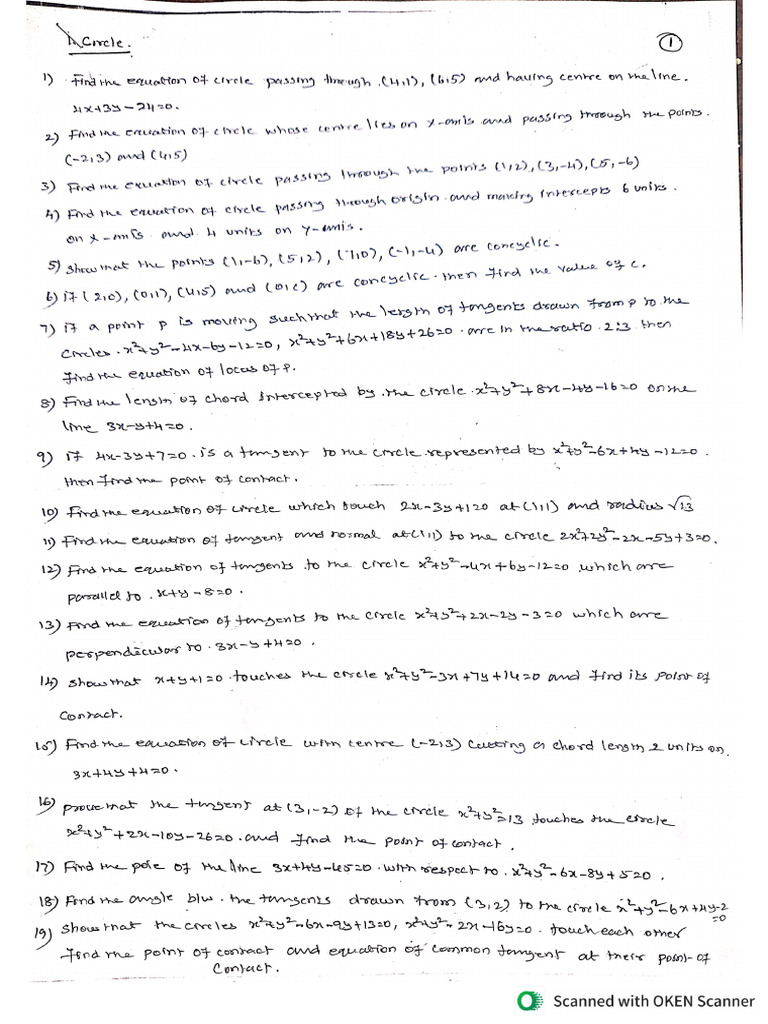 1. Circle.
1
1) Find the equation of circle passing through (4,1), (6,5) and having centre on the line.
4x+3y-24=0.
2) Find the equation of circle whose centre lies on X-axis and passing through the points.
(-2,3) and (4,5)
3) Find the equation of circle passing through the points (1,2), (3,-4), (5,-6)
4) Find the equation of circle passing through origin and making intercepts 6 units.
on X-axis and 4 units on Y-axis.
5) Show that the points (1,-6), (5,2), (7,0), (-1,-4) are concyclic.
6) if (2,0), (0,1), (4,5) and (0,c) are concyclic. then find the value of c.
7) if a point P is moving such that the length of tangents drawn from P to the
circles. x²+y²-4x-6y-12=0, x²+y²+6x+18y+26=0. are in the ratio. 2:3 then
find the equation of locus of P.
8) Find the length of chord intercepted by the circle. x²+y²+8x-4y-16=0 on the
line 3x-y+4=0.
9) if 4x-3y+7=0. is a tangent to the circle represented by x²+y²-6x+4y-12=0.
then find the point of contact.
10) Find the equation of circle which touch 2x-3y+1=0 at (1,1) and radius √13
11) Find the equation of tangent and normal at (1,1) to the circle 2x²+2y²-2x-5y+3=0.
12) Find the equation of tangents to the circle x²+y²-4x+6y-12=0 which are
parallel to. x+y-8=0.
13) Find the equation of tangents to the circle x²+y²+2x-2y-3=0 which are
perpendicular to. 3x-y+4=0.
14) Show that x+y+1=0. touches the circle x²+y²-3x+7y+14=0 and find its point of
contact.
15) Find the equation of circle with centre (-2,3) cutting a chord length 2 units on.
3x+4y+4=0.
16) prove that the tangent at (3,-2) of the circle x²+y²=13 touches the circle
x²+y²+2x-10y-26=0. and find the point of contact.
17) Find the pole of the line 3x+4y-45=0. with respect to. x²+y²-6x-8y+5=0.
18) Find the angle b/w. the tangents drawn from (3,2) to the circle x²+y²-6x+4y-2
=0
19) Show that the circles x²+y²-6x-9y+13=0, x²+y²-2x-16y=0. touch each other
find the point of contact and equation of common tangent at their point of
contact.
Scanned with OKEN Scanner